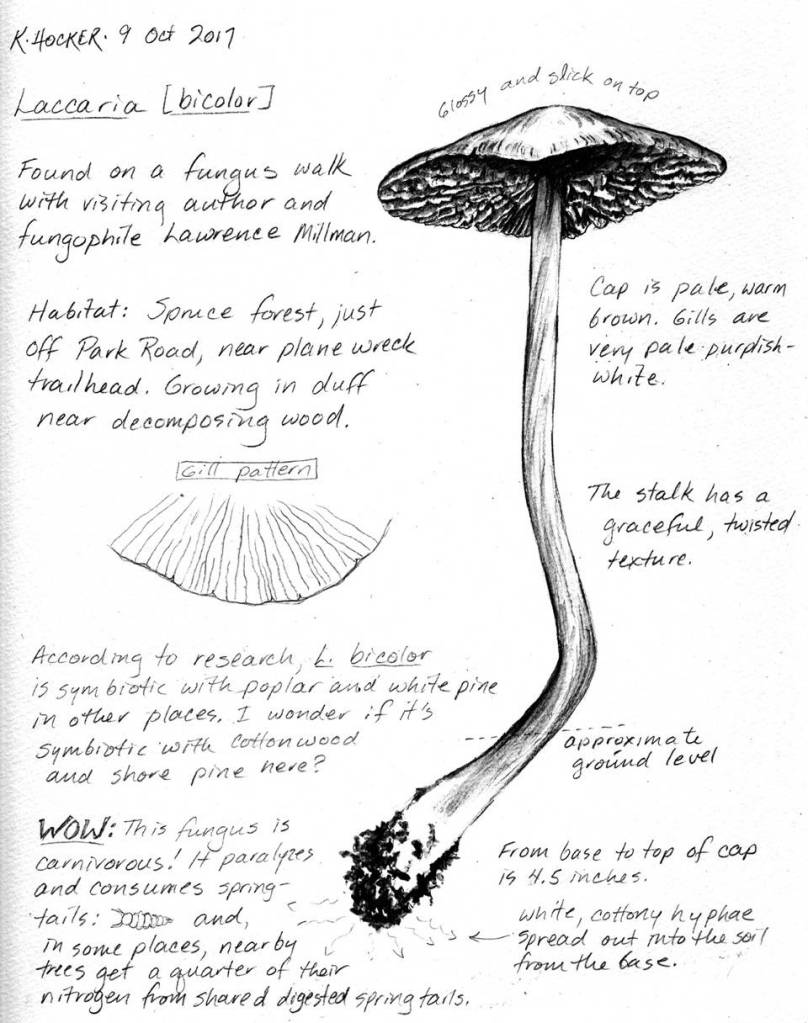 K. HOCKER. 9 Oct 2017
Laccaria [bicolor]
Glossy and slick on top
Found on a fungus walk
with visiting author and
fungophile Lawrence Millman.
Cap is pale, warm
brown. Gills are
very pale purplish-
white.
Habitat: Spruce forest, just
off Park Road, near plane wreck
trailhead. Growing in duff
near decomposing wood.
Gill pattern
The stalk has a
graceful, twisted
texture.
According to research, L. bicolor
is symbiotic with poplar and white pine
in other places. I wonder if it's
symbiotic with cottonwood
and shore pine here?
approximate
ground level
WOW: This fungus is
carnivorous! It paralyzes
and consumes spring-
tails: and,
in some places, nearby
trees get a quarter of their
nitrogen from shared digested springtails.
From base to top of cap
is 4.5 inches.
white, cottony hyphae
spread out into the soil
from the base.